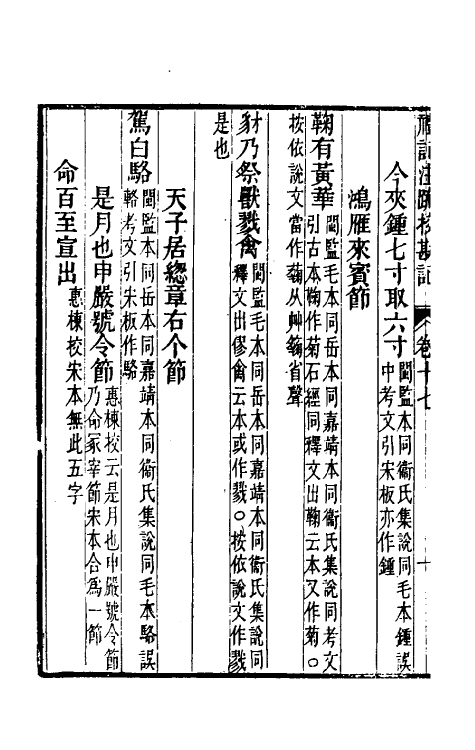 禮記注疏校勘記 卷十七 十
今夾鍾七寸取六寸 閩監本同衞氏集說同毛本鍾誤中考文引宋板亦作鍾
鴻雁來賓節
鞠有黃華 閩監毛本同岳本同嘉靖本同衞氏集說同考文引古本鞠作菊石經同釋文出鞠云本又作菊○按依說文當作蘜从艸鞠省聲
豺乃祭獸戮禽 閩監毛本同岳本同嘉靖本同衞氏集說同釋文出僇禽云本或作戮○按依說文作戮是也
天子居總章右个節
駕白駱 閩監本同岳本同嘉靖本同衞氏集說同毛本駱誤輅考文引宋板作駱
是月也申嚴號令節 惠棟校云是月也申嚴號令節乃命冢宰節宋本合爲一節
命百至宣出 惠棟校宋本無此五字